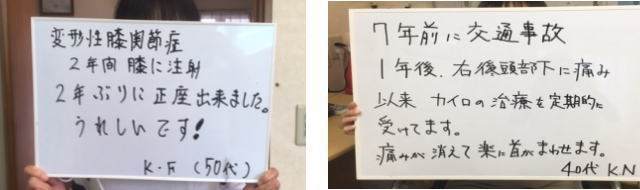 変形性膝関節症
2年間 膝に注射
2年ぶりに正座出来ました。
うれしいです!
K.F (50代)
7年前に交通事故
1年後、右後頭部下に痛み
以来 カイロの治療を定期的に
受けてます。
痛みが消えて楽に首がまわせます。
40代 KN